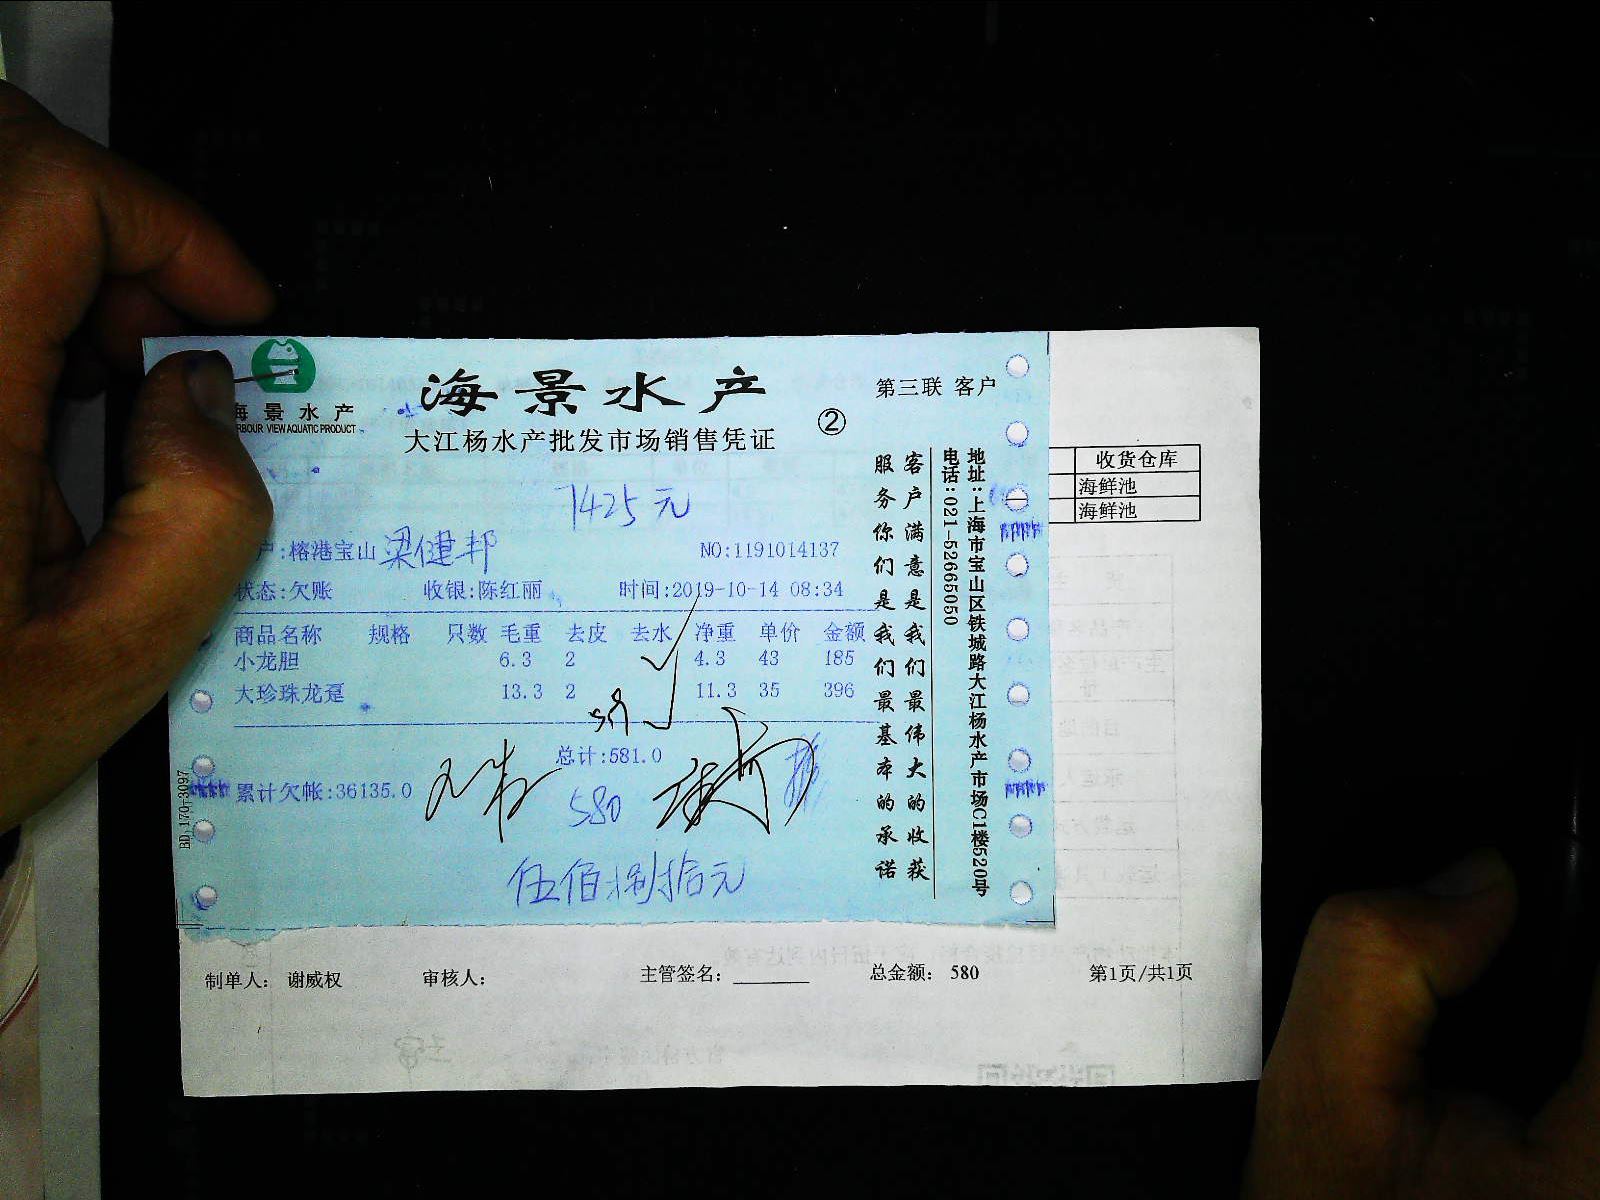 海景水产
HARBOUR VIEW AQUATIC PRODUCT
海景水产
大江杨水产批发市场销售凭证
②
第三联 客户
7425元
户:榕港宝山 梁健邦
NO:1191014137
状态:欠账 收银:陈红丽 时间:2019-10-14 08:34
商品名称 规格 只数 毛重 去皮 去水 净重 单价 金额
小龙胆 6.3 2 4.3 43 185
大珍珠龙趸 13.3 2 11.3 35 396
总计:581.0
累计欠帐:36135.0
580
伍佰捌拾元
客户满意是我们最伟大的收获
服务你们是我们最基本的承诺
地址:上海市宝山区铁城路大江杨水产市场C1楼520号
电话:021-52665050
BD-170+3097
收货仓库
海鲜池
海鲜池
制单人: 谢威权 审核人: 主管签名: 总金额: 580 第1页/共1页